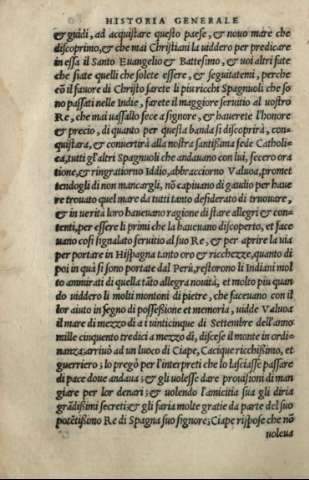 HISTORIA GENERALE
& guidi, ad acquistare questo paese, & nouo mare che
discoprimo, & che mai Christiani la uiddero per predicare
in essa il Santo Euangelio & Battesimo, & uoi altri fate
che siate quelli che solete essere, & seguitatemi, perche
cō il fauore di Christo sarete li piu ricchi Spagnuoli che so
no passati nelle Indie, farete il maggiore seruitio al uostro
Re, che mai uassallo fece a signore, & hauerete l'honore
& precio, di quanto per questa banda si discoprirà, con-
quistara, & conuertirà alla nostra santissima fede Catholi-
ca, tutti gl'altri Spagnuoli che andauano con lui, fecero ora
tione, & ringratiorno Iddio, abbracciorno Valuoa, promet
tendogli di non mancargli, nō capiuano di gaudio per haue
re trouato quel mare da tutti tanto desiderato di truouare,
& in uerita loro haueuano ragione di stare allegri & con-
tenti, per essere li primi che la haueuano discoperto, et face
uano cosi signalato seruitio al suo Re, & per aprire la uia
per portare in Hispagna tanto oro & ricchezze, quanto di
poi in quà si sono portate dal Perù, restorono li Indiani mol
to ammirati di quella tāto allegra nouità, et molto piu quan
do uiddero li molti montoni di pietre, che faceuano con il
lor aiuto in segno di possessione et memoria, uidde Valuoa
il mare di mezzo di a i uinticinque di Settembre dell'anno
mille cinquento tredici a mezzo dì, discese il monte in ordi-
nanza, arriuò ad un luoco di Ciape, Cacique ricchissimo, et
guerriero; lo pregò per l'interpreti che lo lasciasse passare
di pace doue andaua; & gli uolesse dare prouisioni di man
giare per lor denari; & uolendo l'amicitia sua gli diria
grādissimi secreti; & gli faria molte gratie da parte del suo
potētissimo Re di Spagna suo signore; Ciape rispose che nō
uoleua